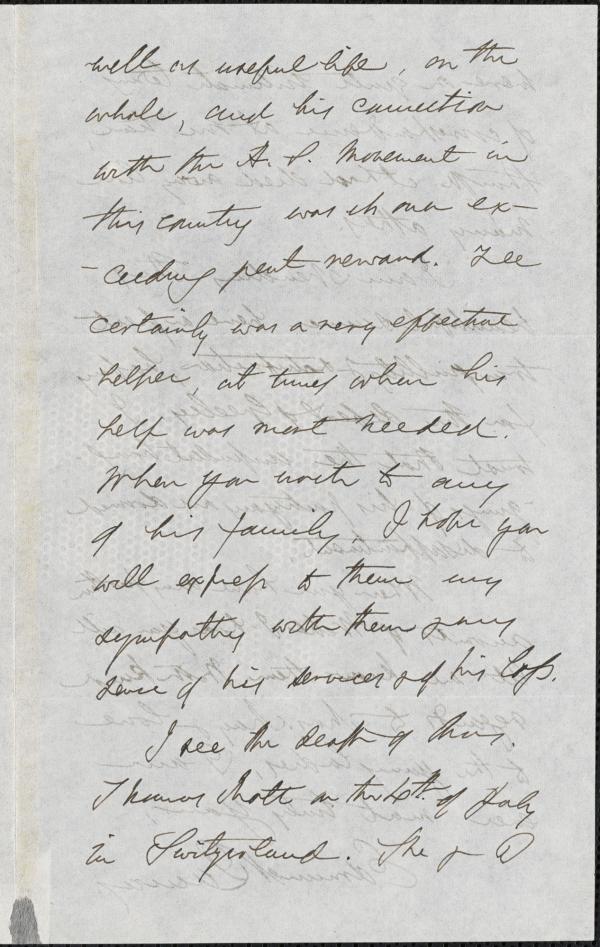 well as useful life, on the
whole, and his connection
with the A. S. Movement in
this country was its own ex-
-ceeding great reward. Lee
certainly was a very effectual
helper, at times when his
help was most needed.
When you write to any
of his family, I hope you
will express to them my
sympathy with them & my
sense of his services & of his loss.
I see the death of Mrs.
Thomas Mott on the 4th of July
in Switzerland. She & I